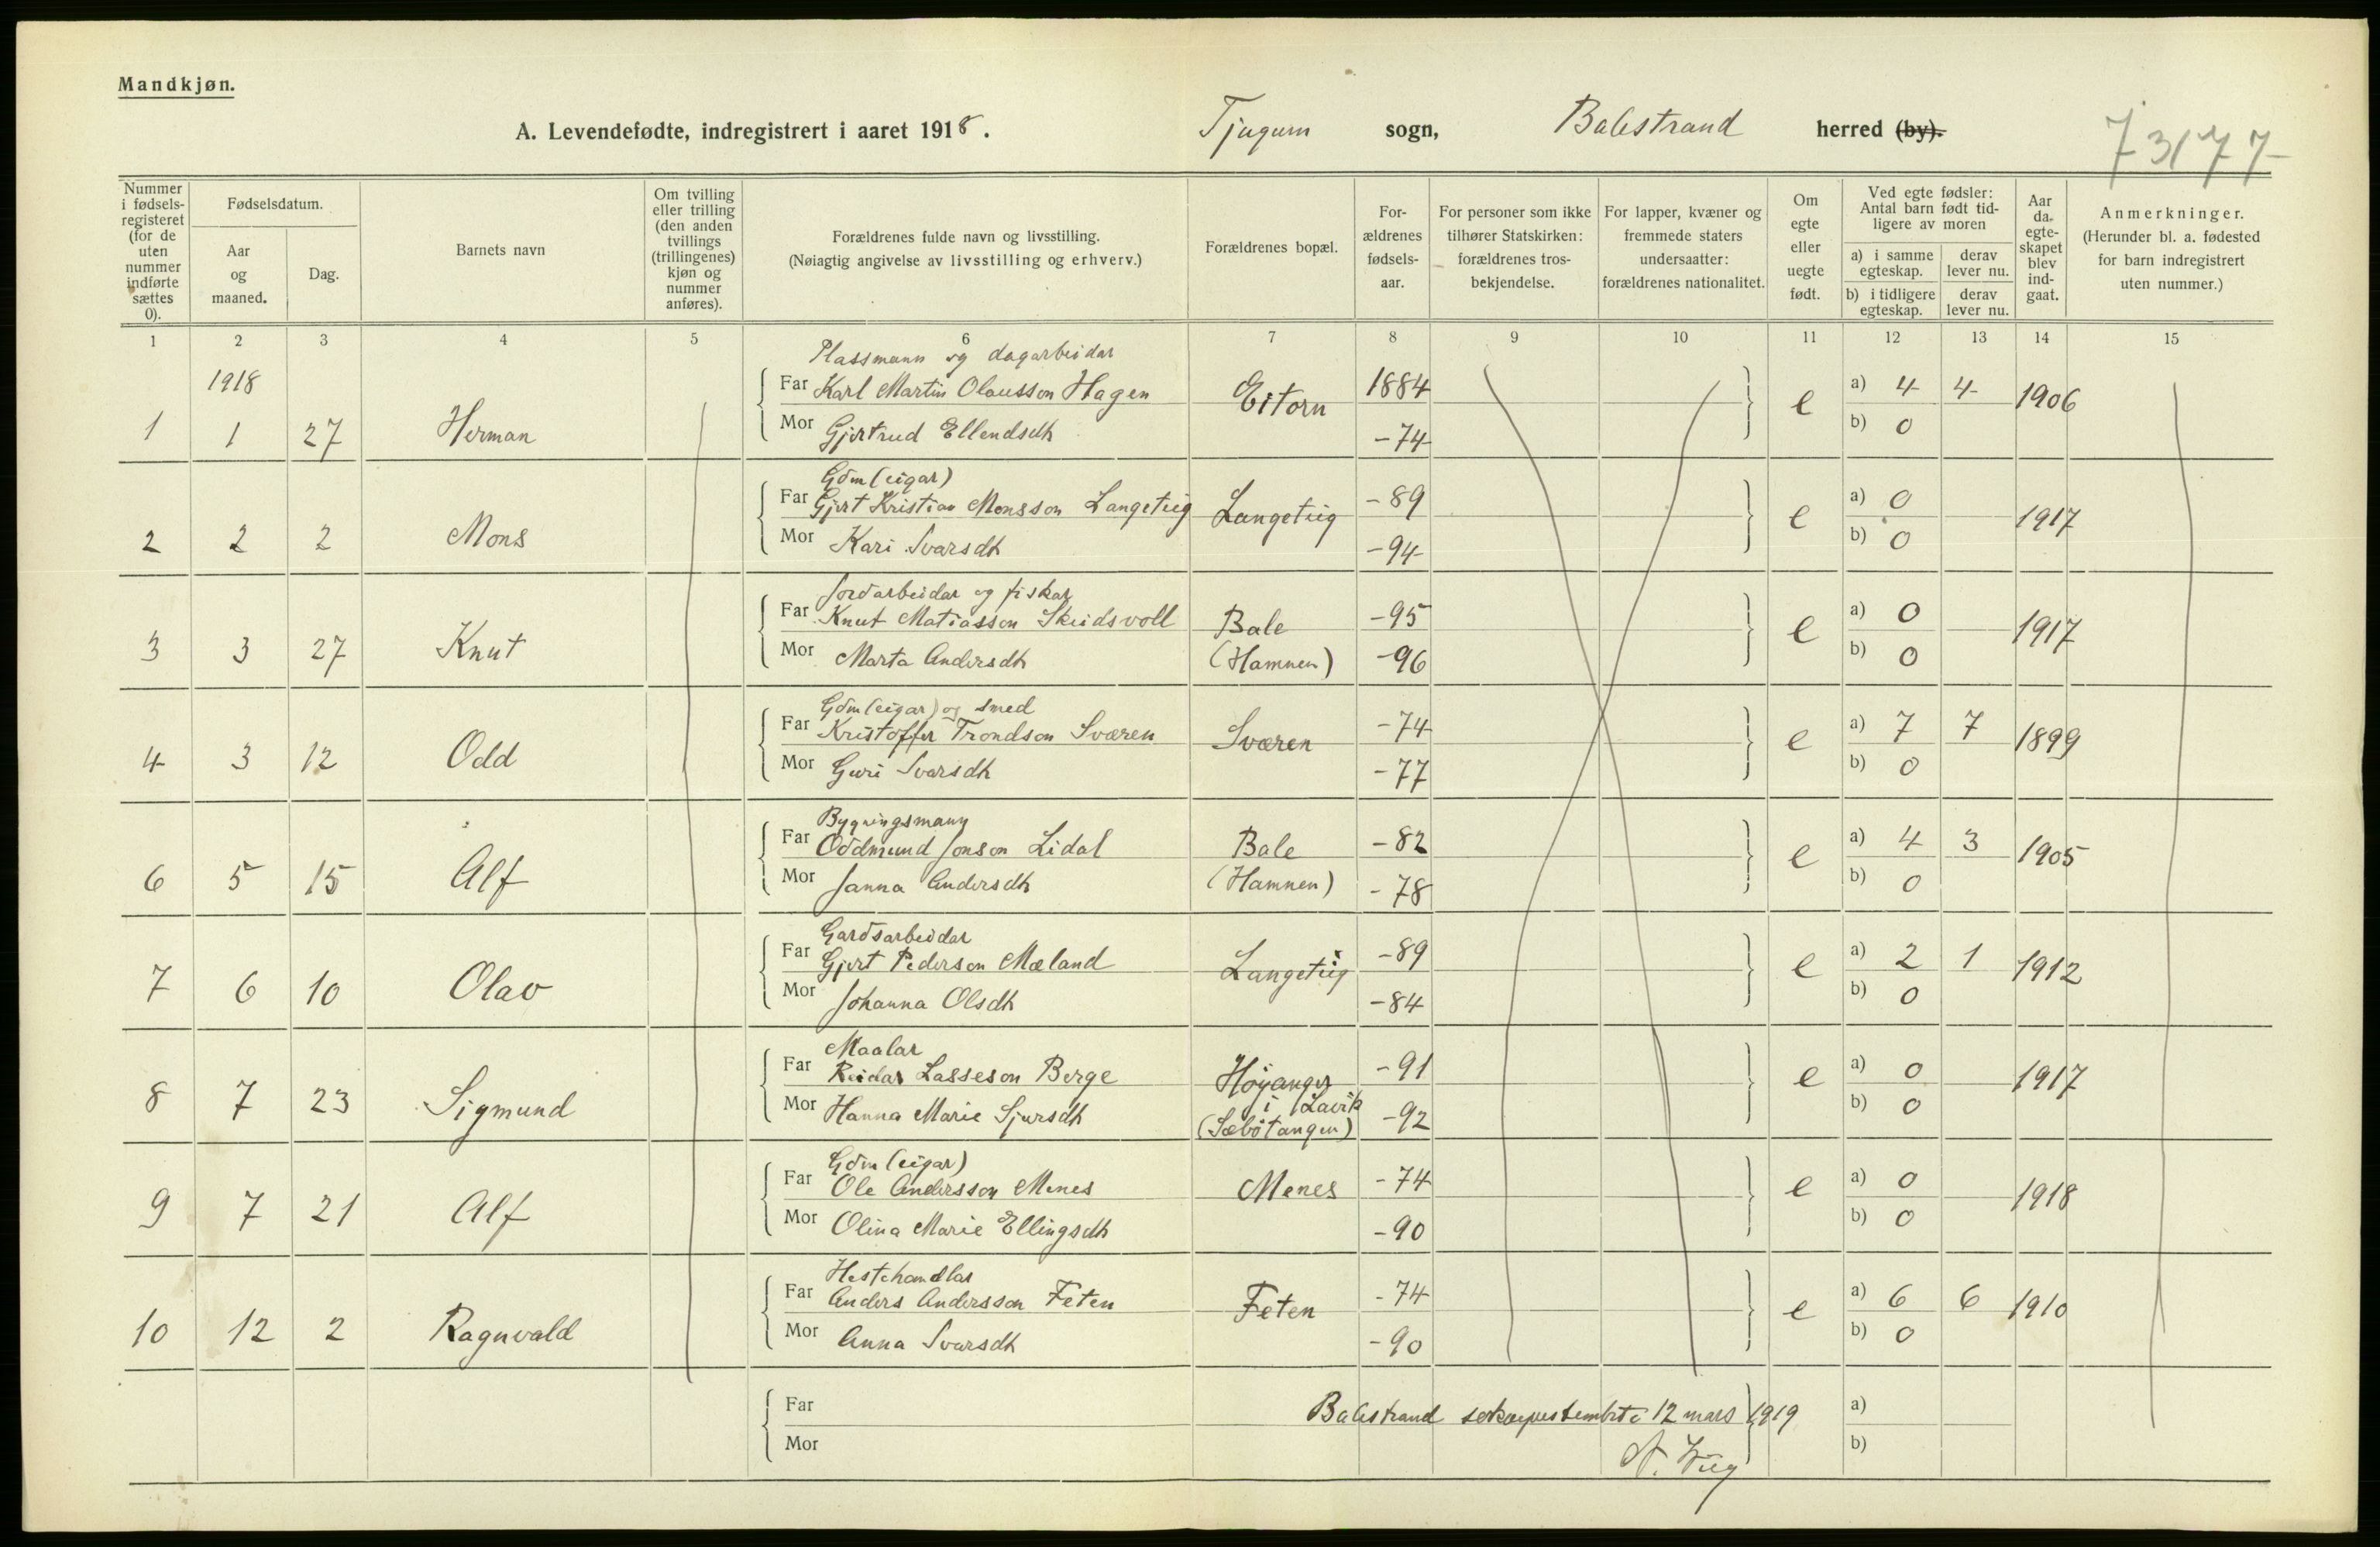 Mandkjøn.
A. Levendefødte, indregistrert i aaret 1918. Tjugum sogn, Balestrand herred (by).
73177
Nummer i fødsels-registeret (for de uten nummer indførte sættes 0).
Fødselsdatum.
Aar og maaned.
Dag.
Barnets navn
Om tvilling eller trilling (den anden tvillings (trillingenes) kjøn og nummer anføres).
Forældrenes fulde navn og livsstilling. (Nøiagtig angivelse av livsstilling og erhverv.)
Forældrenes bopæl.
For-ældrenes fødsels-aar.
For personer som ikke tilhører Statskirken: forældrenes tros-bekjendelse.
For lapper, kvæner og fremmede staters undersaatter: forældrenes nationalitet.
Om egte eller uegte født.
Ved egte fødsler: Antal barn født tid-ligere av moren
a) i samme egteskap. derav lever nu.
b) i tidligere egteskap. derav lever nu.
Aar da egte-skapet blev ind-gaat.
Anmerkninger. (Herunder bl. a. fødested for barn indregistrert uten nummer.)
1 2 3 4 5 6 7 8 9 10 11 12 13 14 15
1918
Plassmann og dagarbeidar
Far Karl Martin Olausson Hagen Eitorn 1884 e a) 4 4 1906
1 1 27 Herman Mor Gjertrud Ellendsdh -74 b) 0
Gdm (eigar)
Far Gjert Kristian Monsson Langeteig Langeteig -89 e a) 0 1917
2 2 2 Mons Mor Kari Ivarsdh -94 b) 0
Jordarbeidar og fiskar
Far Knut Matiasson Skeidsvoll Bale -95 e a) 0 1917
3 3 27 Knut Mor Marta Andersdh (Hamnen) -96 b) 0
Gdm (eigar) og smed
Far Kristoffer Trondson Sværen Sværen -74 e a) 7 7 1899
4 3 12 Odd Mor Guri Ivarsdh -77 b) 0
Bygningsmann
Far Oddmund Jonson Lidal Bale -82 e a) 4 3 1905
6 5 15 Alf Mor Janna Andersdh (Hamnen) -78 b) 0
Gardsarbeidar
Far Gjert Pederson Mæland Langeteig -89 e a) 2 1 1912
7 6 10 Olav Mor Johanna Olsdh -84 b) 0
Maalar
Far Reidar Lasseson Berge Høyanger -91 e a) 0 1917
i Lavik
8 7 23 Sigmund Mor Hanna Marie Sjursdh (Sæbøtangen) -92 b) 0
Gdm (eigar)
Far Ole Andersson Menes Menes -74 e a) 0 1918
9 7 21 Alf Mor Olina Marie Ellingsdh -90 b) 0
Hestehandlar
Far Anders Andersson Feten Feten -74 e a) 6 6 1910
10 12 2 Ragnvald Mor Anna Ivarsdh -90 b) 0
Far Balestrand 12 mars 1919 a)
Mor b)